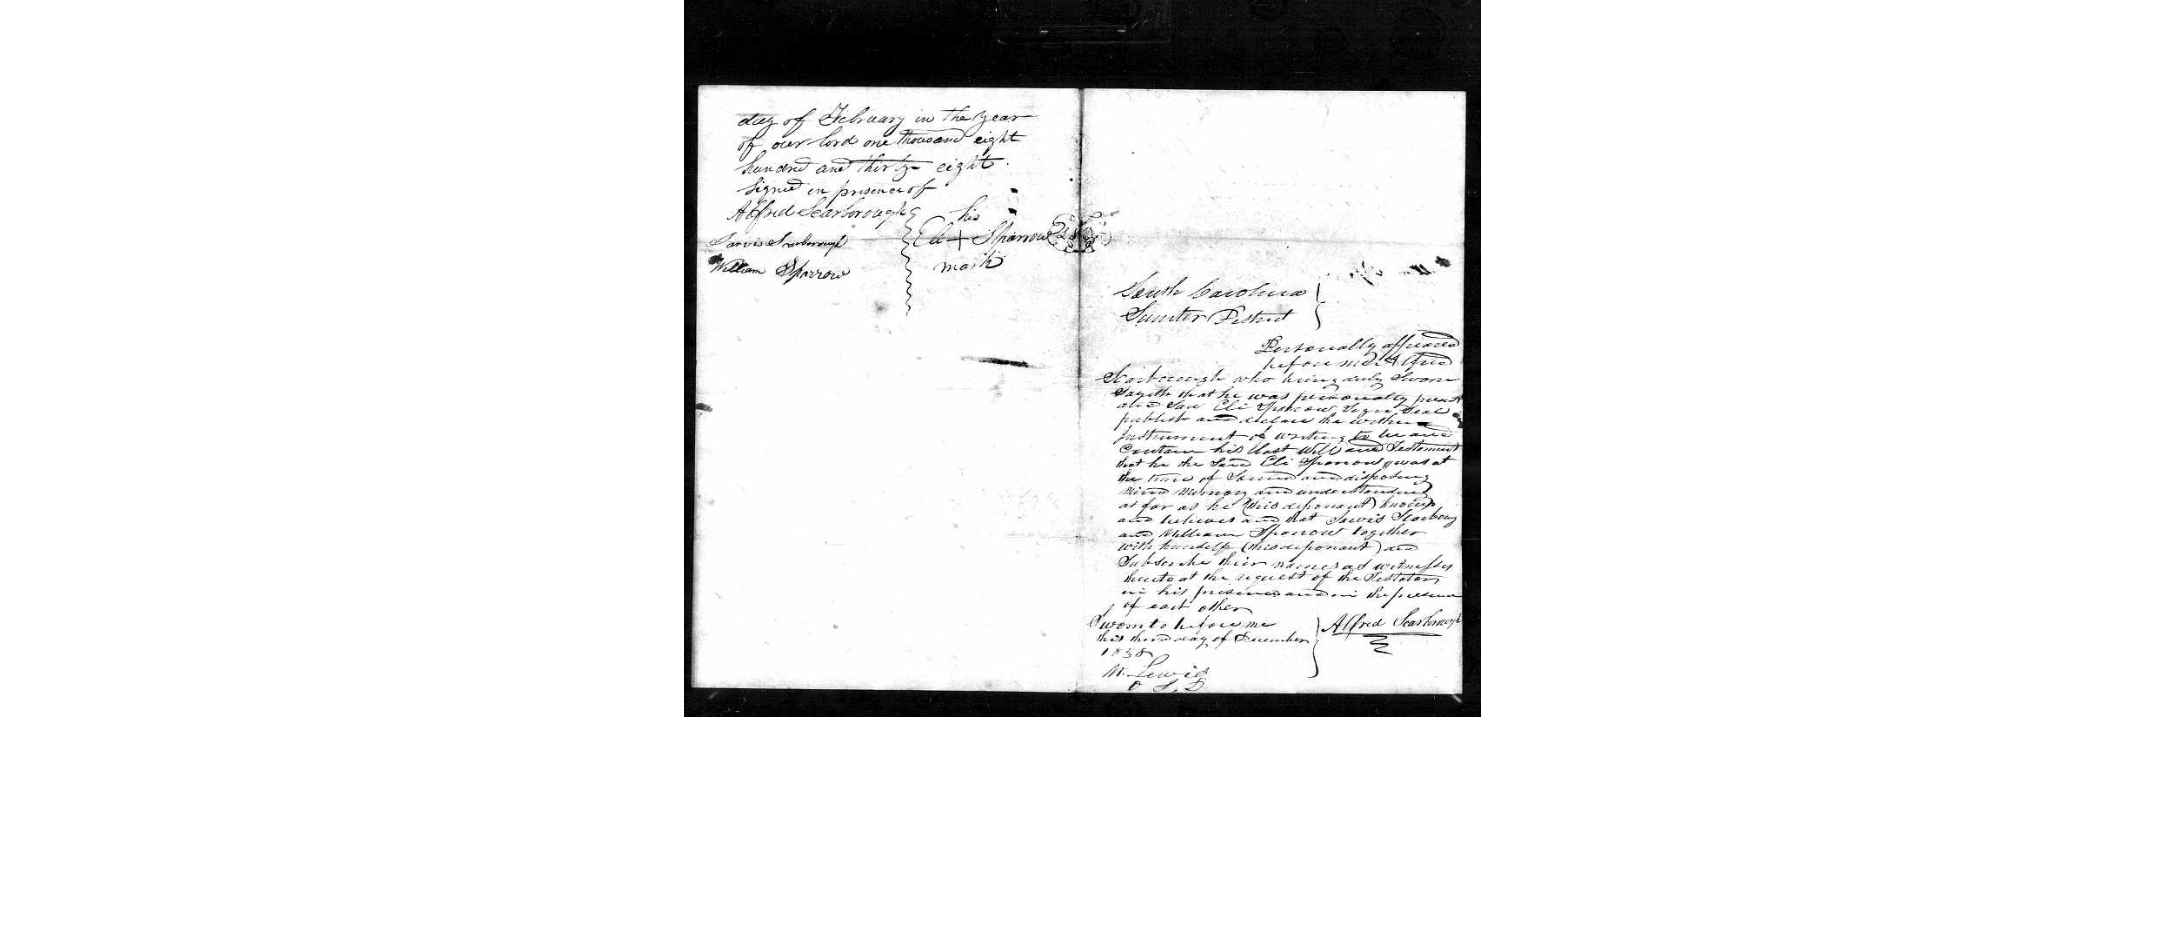 day of February in the year
of our lord one thousand eight
hundred and thirty eight.
Signed in presence of
Alfred Scarborough
his
Eli + Sparrow
mark
Scarborough
William Sparrow
South Carolina
Sumter District
Personally appeared
before me Alfred
Scarborough who being duly Sworn
Sayeth that he was personally present
and Saw Eli Sparrow Sign Seal
publish and declare the within
Instrument of writing to be and
Contain his last Will and Testament
that he the Said Eli Sparrow was at
the time of Sound and disposing
mind memory and understanding
as far as he (this deponant) knows
and believes and that
and William Sparrow together
with himself (this deponant) did
Subscribe their names as witnesses
thereto at the request of the Testator
in his presence and in the presence
of each other
Sworn to before me
this third day of December
1838
Alfred Scarborough
W. Lewis
O S. D